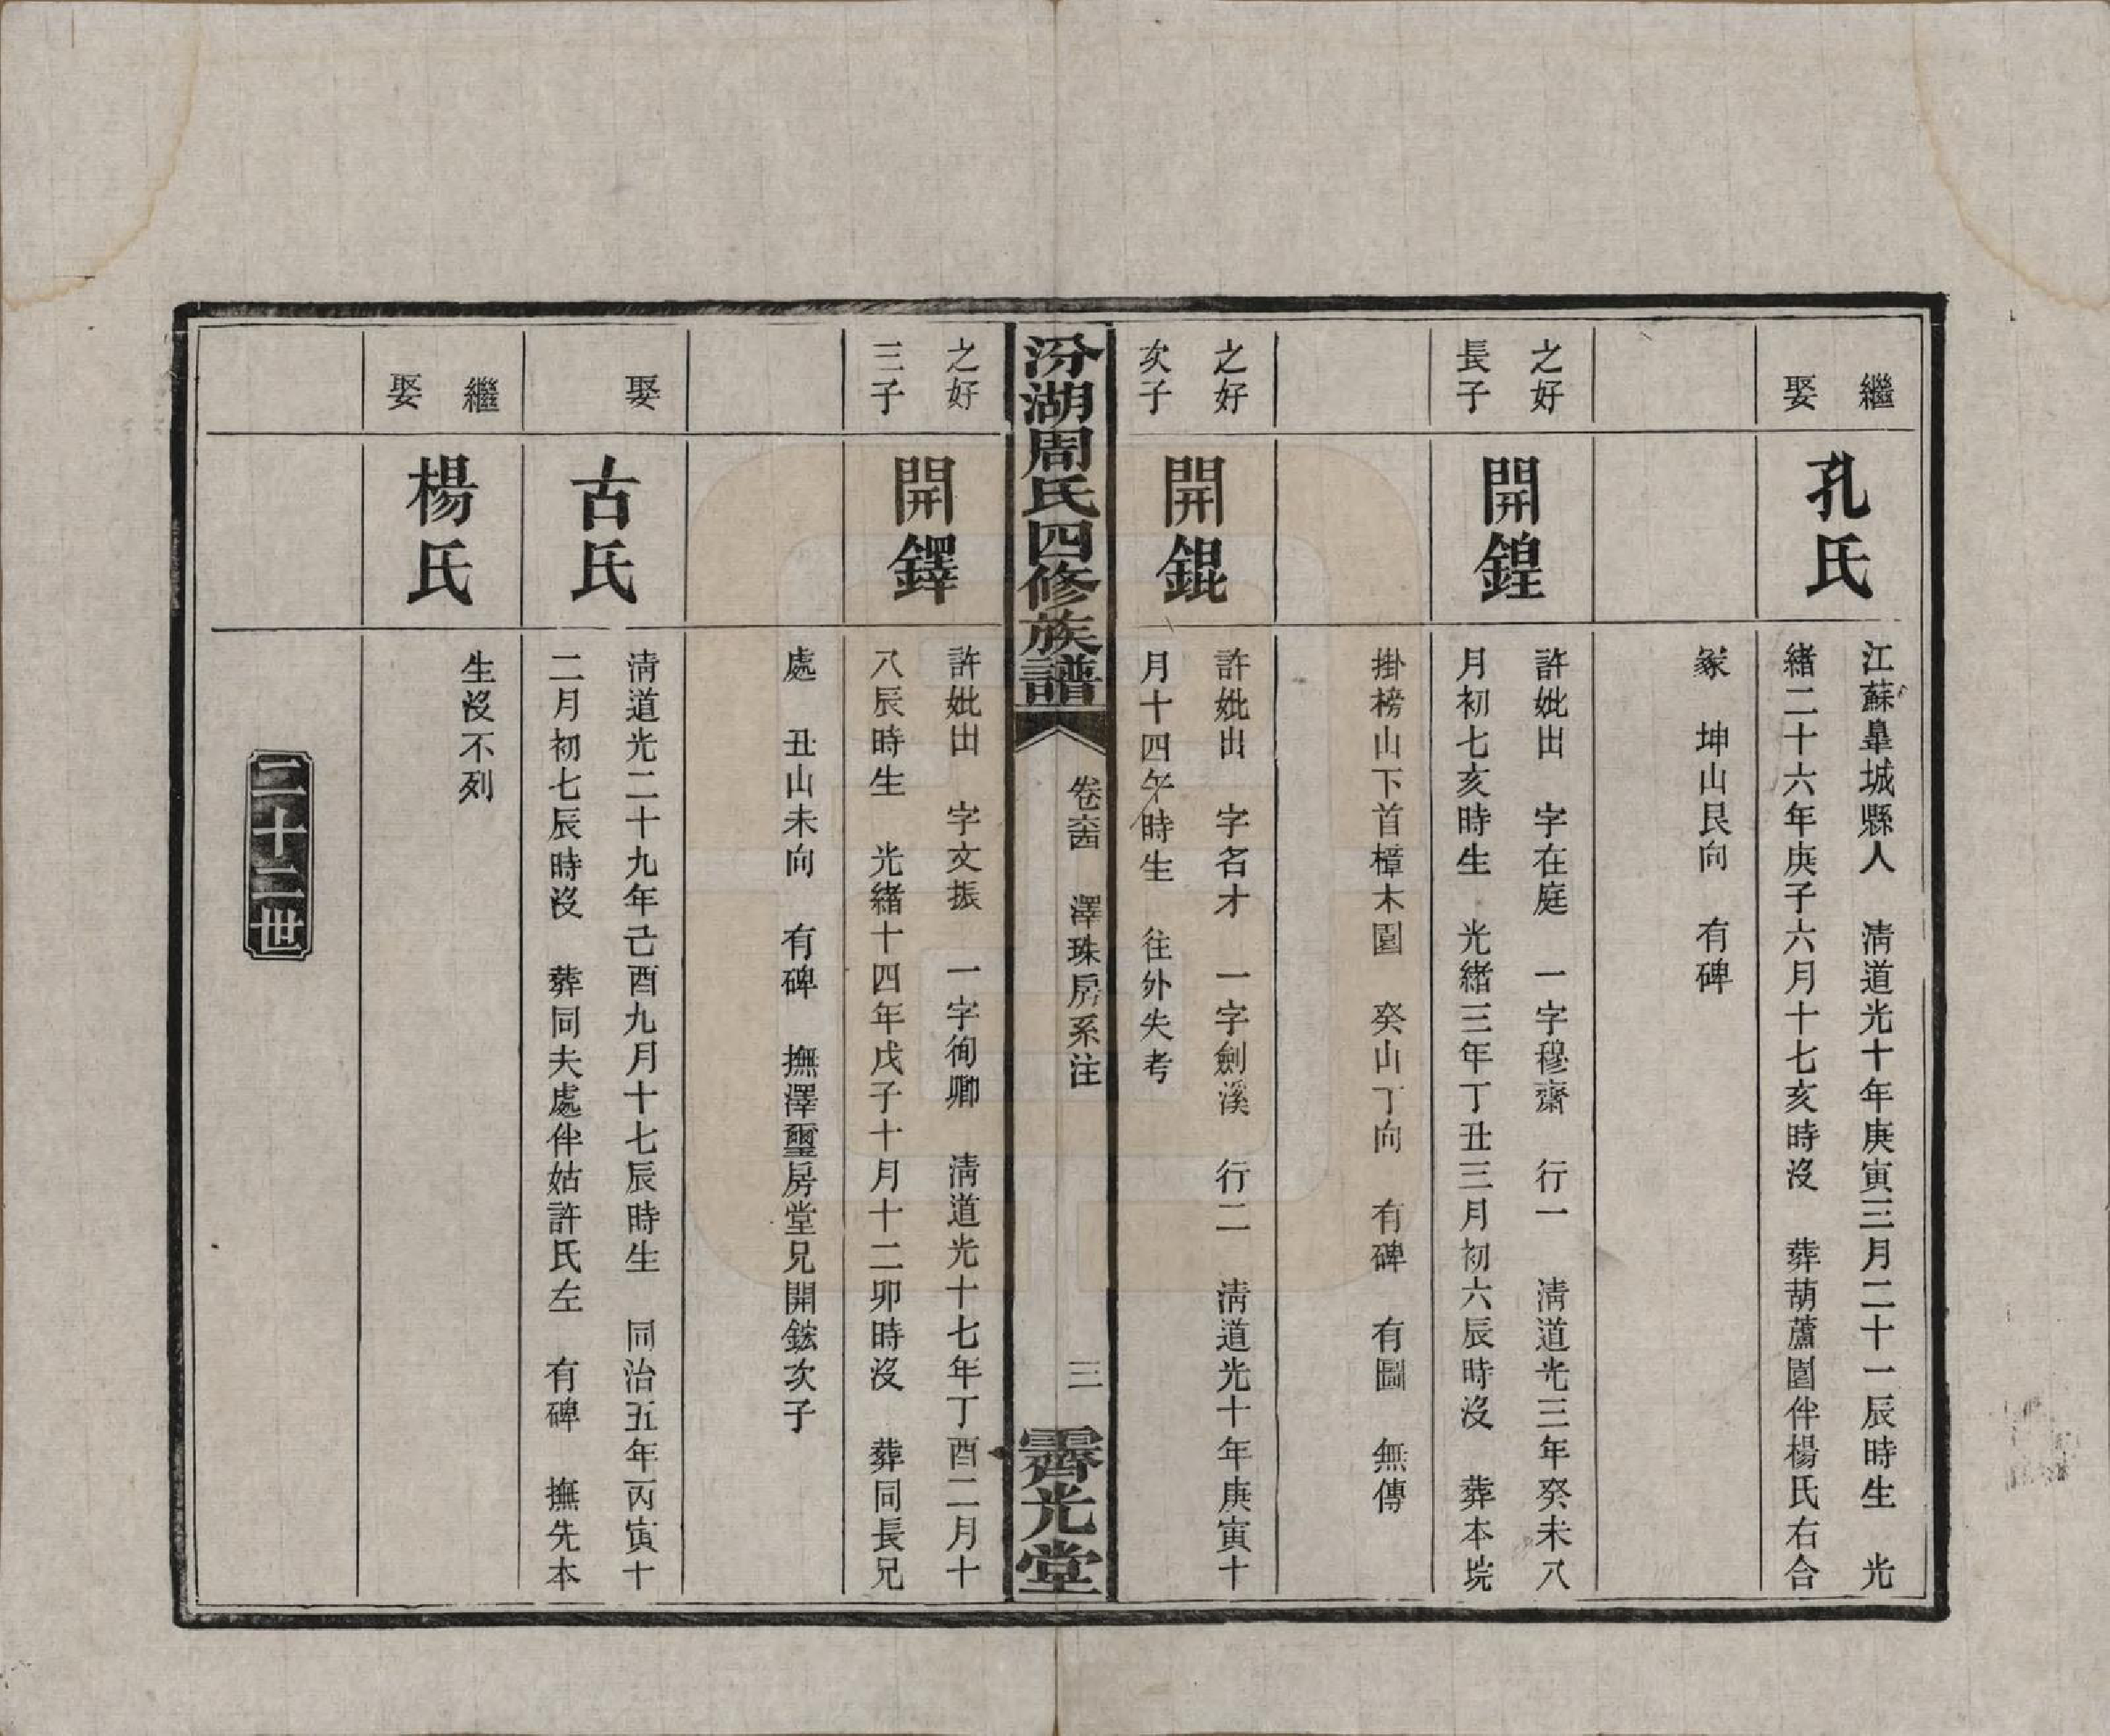 繼
娶
孔氏
江蘇臯城縣人　清道光十年庚寅三月二十一辰時生　光
緒二十六年庚子六月十七亥時沒　葬葫蘆園伴楊氏右合
冢　坤山艮向　有碑
之好
長子
開鍠
許妣出　字在庭　一字穆齋　行一　清道光三年癸未八
月初七亥時生　光緒三年丁丑三月初六辰時沒　葬本垸
掛榜山下首樟木園　癸山丁向　有碑　有圖　無傳
之好
次子
開錕
許妣出　字名才　一字劍溪　行二　清道光十年庚寅十
月十四午時生　往外失考
汾湖周氏四修族譜
卷六四　澤珠房系注
三
霽光堂
之好
三子
開鐸
許妣出　字文振　一字徇卿　清道光十七年丁酉二月十
八辰時生　光緒十四年戊子十月十二卯時沒　葬同長兄
處　丑山未向　有碑　撫澤璽房堂兄開鋐次子
娶
古氏
清道光二十九年己酉九月十七辰時生　同治五年丙寅十
二月初七辰時沒　葬同夫處伴姑許氏左　有碑　撫先本
繼
娶
楊氏
生沒不列
二十二世